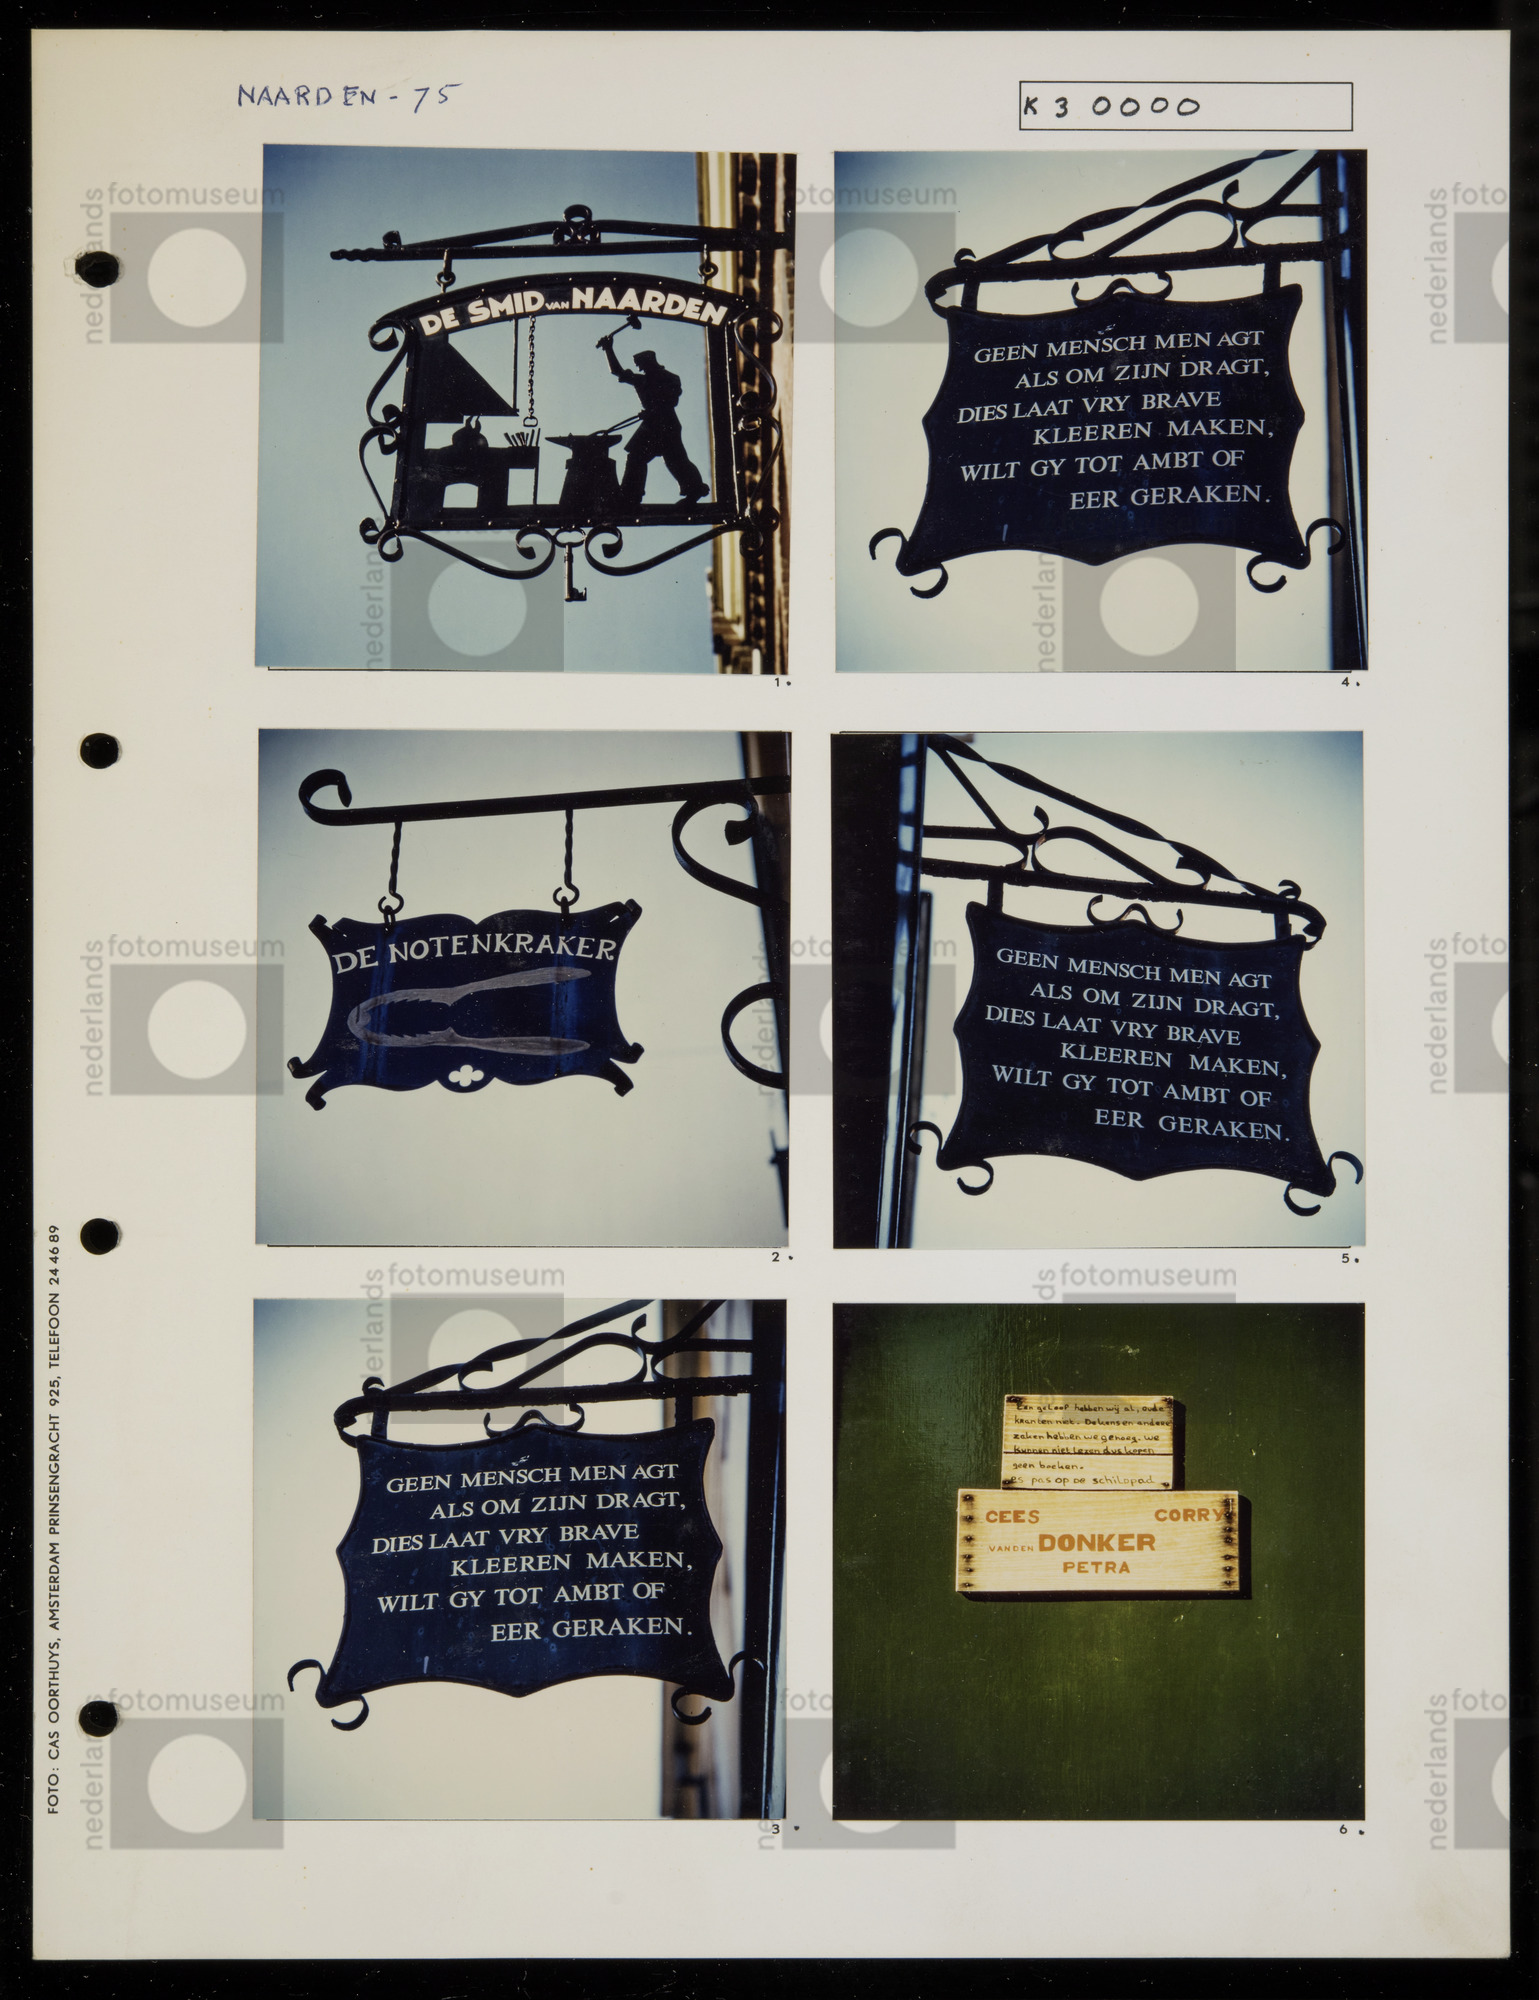 NAARDEN - 75
K 3 0000
DE SMID VAN NAARDEN
1.
GEEN MENSCH MEN AGT
ALS OM ZIJN DRAGT,
DIES LAAT VRY BRAVE
KLEEREN MAKEN,
WILT GY TOT AMBT OF
EER GERAKEN.
4.
DE NOTENKRAKER
2.
GEEN MENSCH MEN AGT
ALS OM ZIJN DRAGT,
DIES LAAT VRY BRAVE
KLEEREN MAKEN,
WILT GY TOT AMBT OF
EER GERAKEN.
5.
GEEN MENSCH MEN AGT
ALS OM ZIJN DRAGT,
DIES LAAT VRY BRAVE
KLEEREN MAKEN,
WILT GY TOT AMBT OF
EER GERAKEN.
3.
Een geloof hebben wij al, oude
kranten niet. Dekens en andere
zaken hebben we genoeg. we
kunnen niet lezen dus kopen
geen boeken.
PS pas op de schildpad
CEES CORRY
VAN DEN DONKER
PETRA
6.
FOTO: CAS OORTHUYS, AMSTERDAM PRINSENGRACHT 925, TELEFOON 24 46 89
nederlands fotomuseum